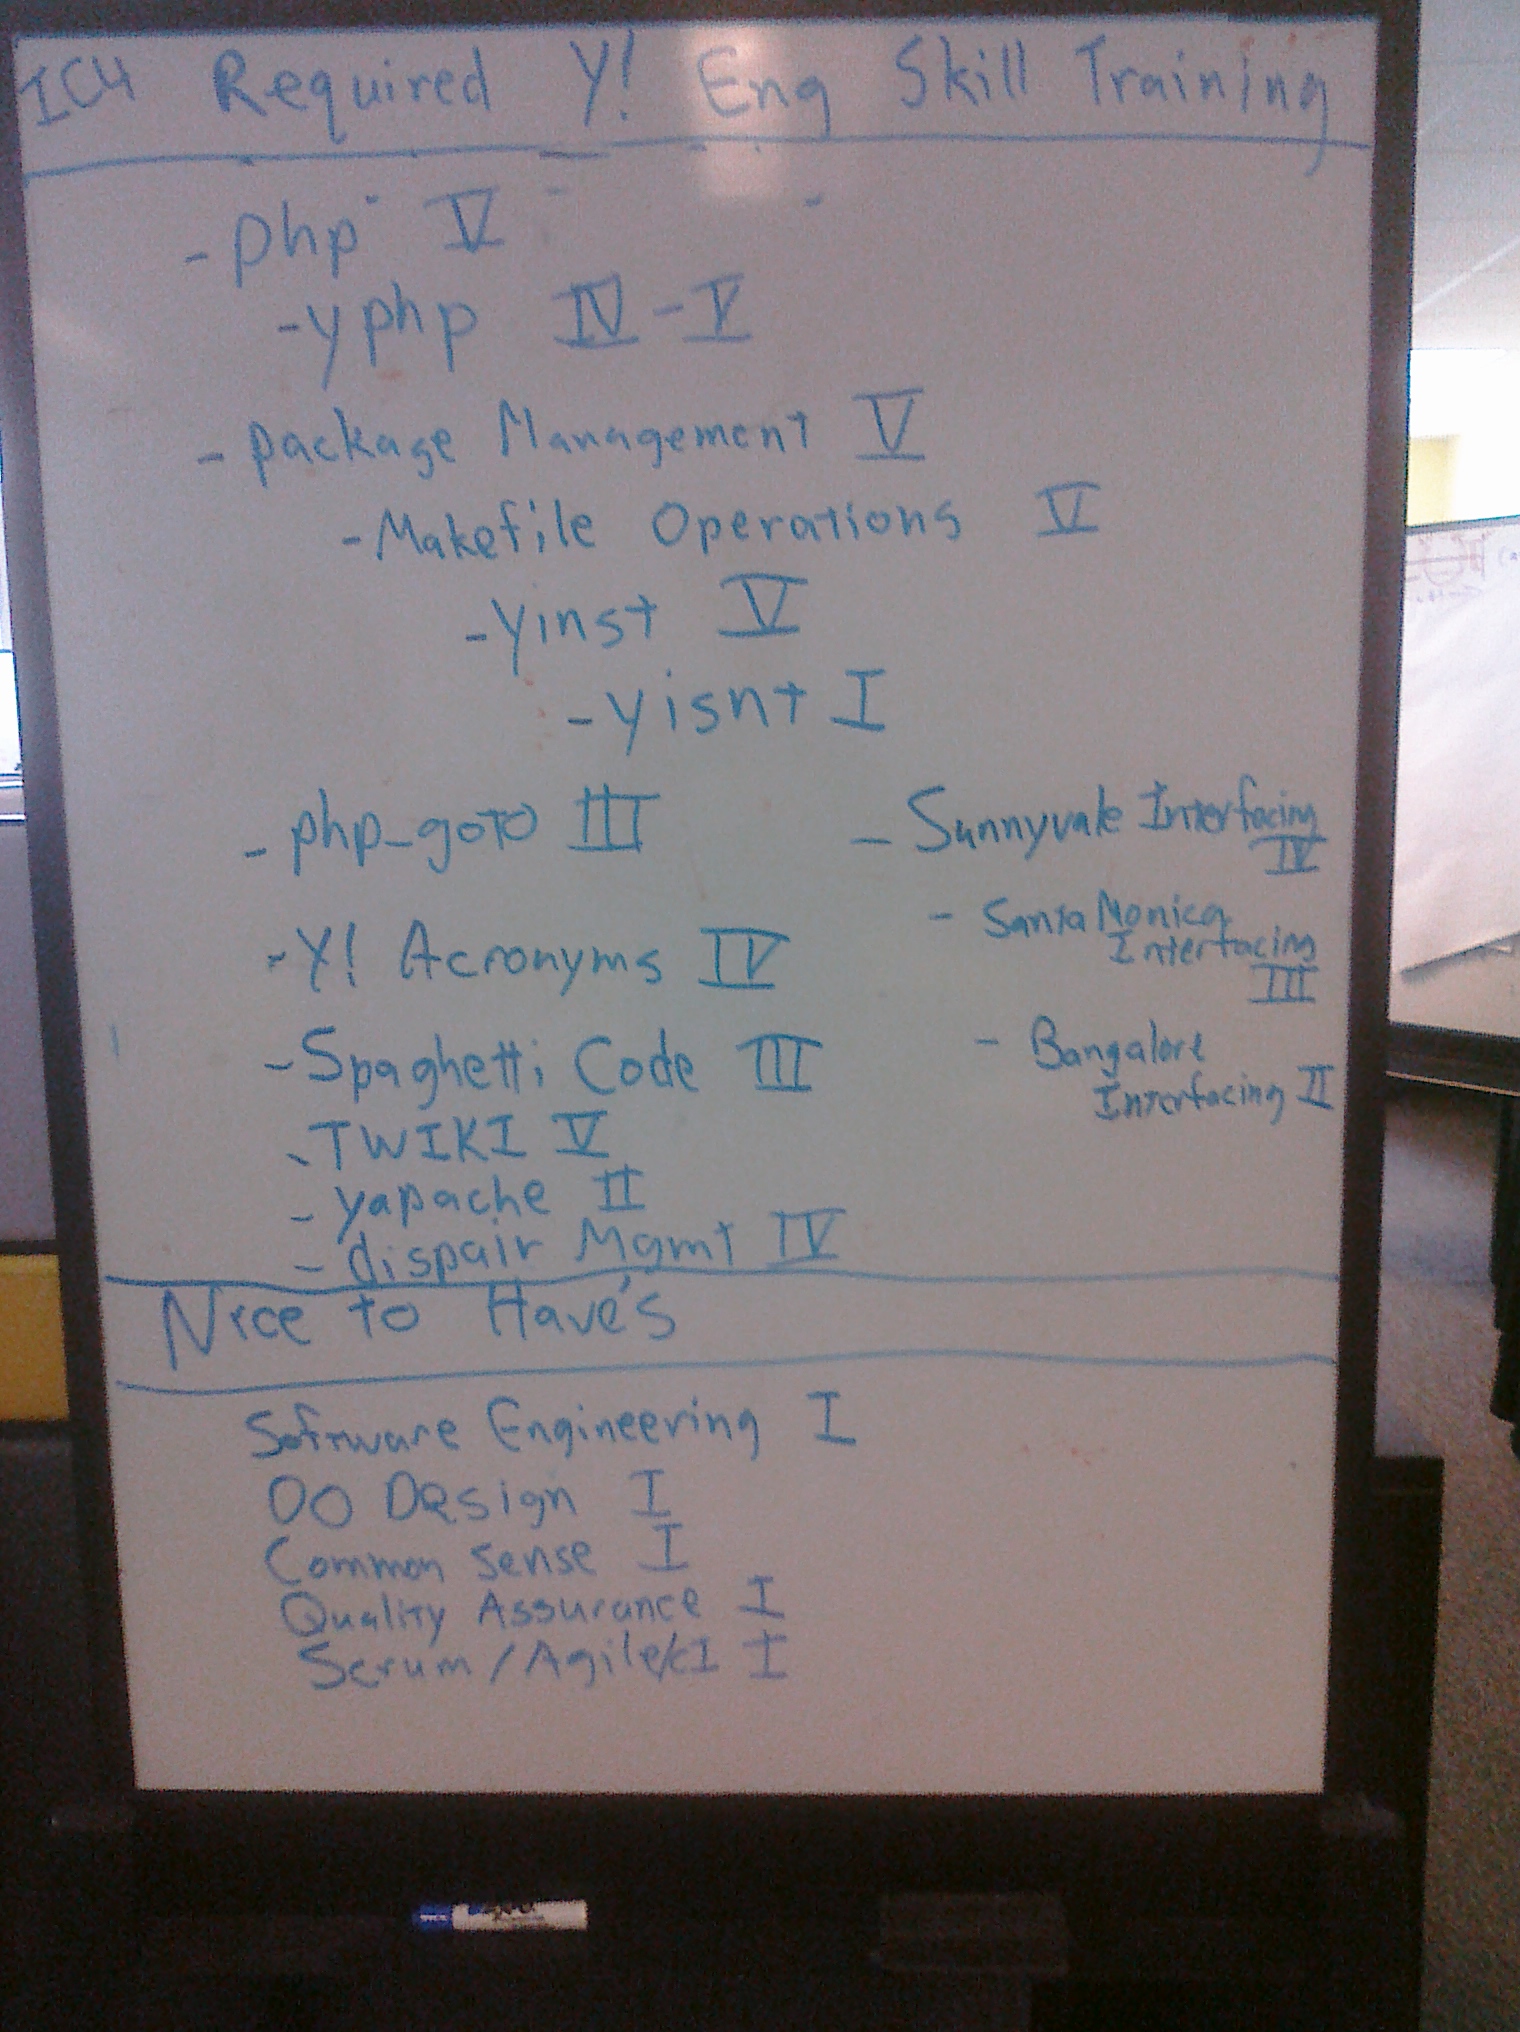 IC4 Required Y! Eng Skill Training
- php V
- yphp IV - V
- package Management V
- Makefile Operations V
- yinst V
- yisnt I
- php_goto III
- Y! Acronyms IV
- Spaghetti Code III
- TWIKI V
- yapache II
- dispair Mgmt IV
- Sunnyvale Interfacing
IV
- Santa Monica
Interfacing
III
- Bangalore
Interfacing II
Nice to Have's
Software Engineering I
OO Design I
Common Sense I
Quality Assurance I
Scrum/Agile/CI I